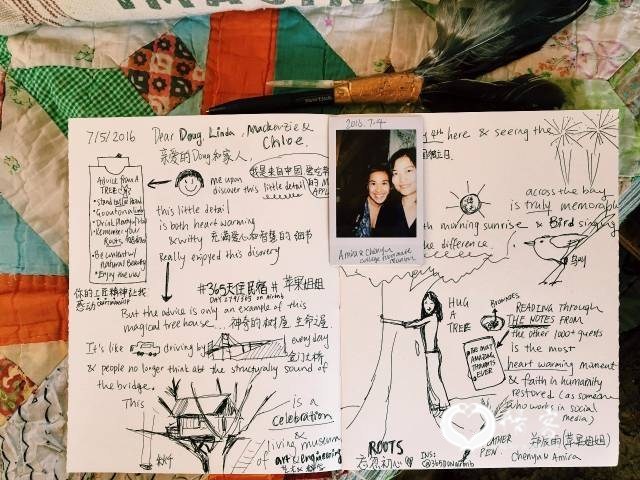 7/5/2016 Dear Doug, Linda, Mackenzie &
Chloe.
亲爱的Doug和家人,
我是来自中国
me upon
discover this little detail
ADVICE FROM A
TREE
• Stand tall & Proud
• Go out on a limb
• Remember your
Roots
• Be content w/
natural Beauty
• Enjoy the view
this little detail
is both heart warming
& witty 充满爱心和智慧的细节
Really enjoyed this disovery
你的工匠精神让我
感动
#365天住民宿# 苹果姐姐
DAY 279/365 on airbnb
But the advice is only an example of this
magical tree house... 神奇的树屋
It's like driving by everyday
金门大桥
& people no longer think abt the structurally sound of
the bridge.
This is a
celebration
&
living museum
of art & engineering
2016.7.4
Amira & Chenyu
college roommate
reunion
4th here & seeing the
across the bay
is truly memorable
morning sunrise & Bird singing
the difference.
HUG
A
TREE
BROWNIES
THE MOST
AMAZING
THOUGHTS
EVER
READING through
THE NOTES FROM
the other 1000+ guests
is the most
heart warming moment
& faith in humanity
restored (as someone
who works in social
media)
ROOTS
勿忘初心
INS:
FEATHER
PEN.
(苹果姐姐)
Chenyu & Amira